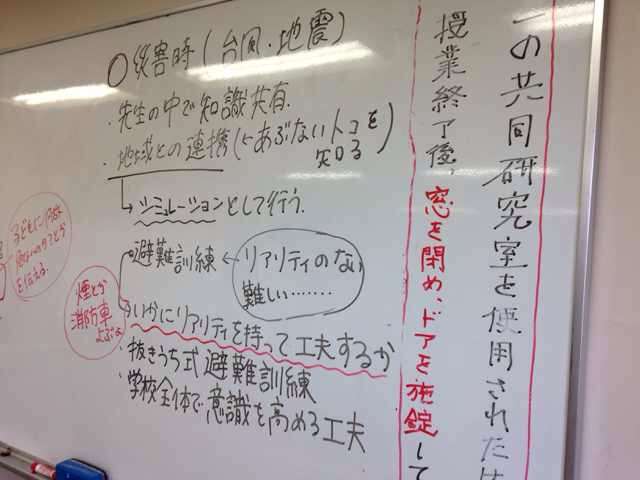 ○災害時(台風・地震)
・先生の中で知識共有.
・地域との連携(←あぶないトコを
知る
→シミュレーションとして行う.
避難訓練 ← リアリティのない
難しい.......
いかにリアリティを持って工夫するか
・抜きうち式 避難訓練
・学校全体で意識を高める工夫
子どもに
を伝える.
煙とか
消防車
よぶよ
の共同研究室を使用された
授業終了後、窓を閉め、ドアを施錠して